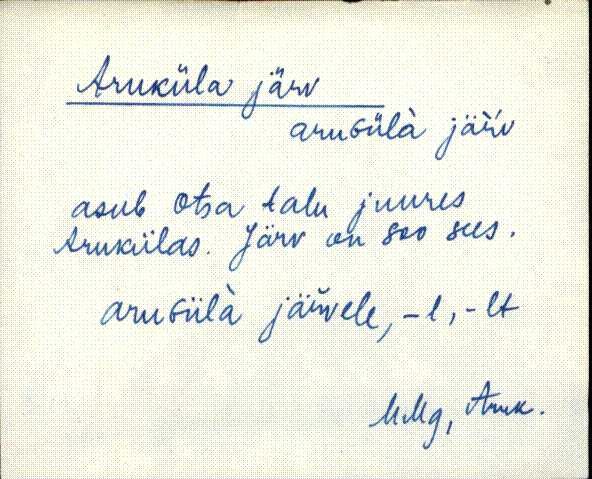 Aruküla järv
aruɢülà jäŕv
asub Otsa talu juures
Arukülas. Järv on soo sees.
aruɢülà jäŕvele, -l, -lt
MMg, Aruk.